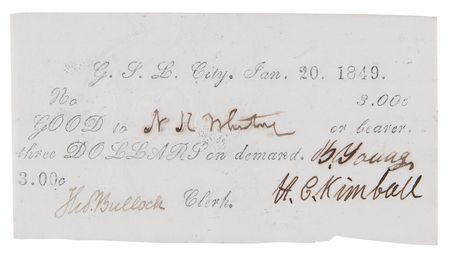 G. S. L. City. Jan. 20. 1849.
No 3.00c
GOOD to N K Whitney or bearer.
three DOLLARS on demand. B. Young
3.00c H. C. Kimball
Tho.s Bullock Clerk.